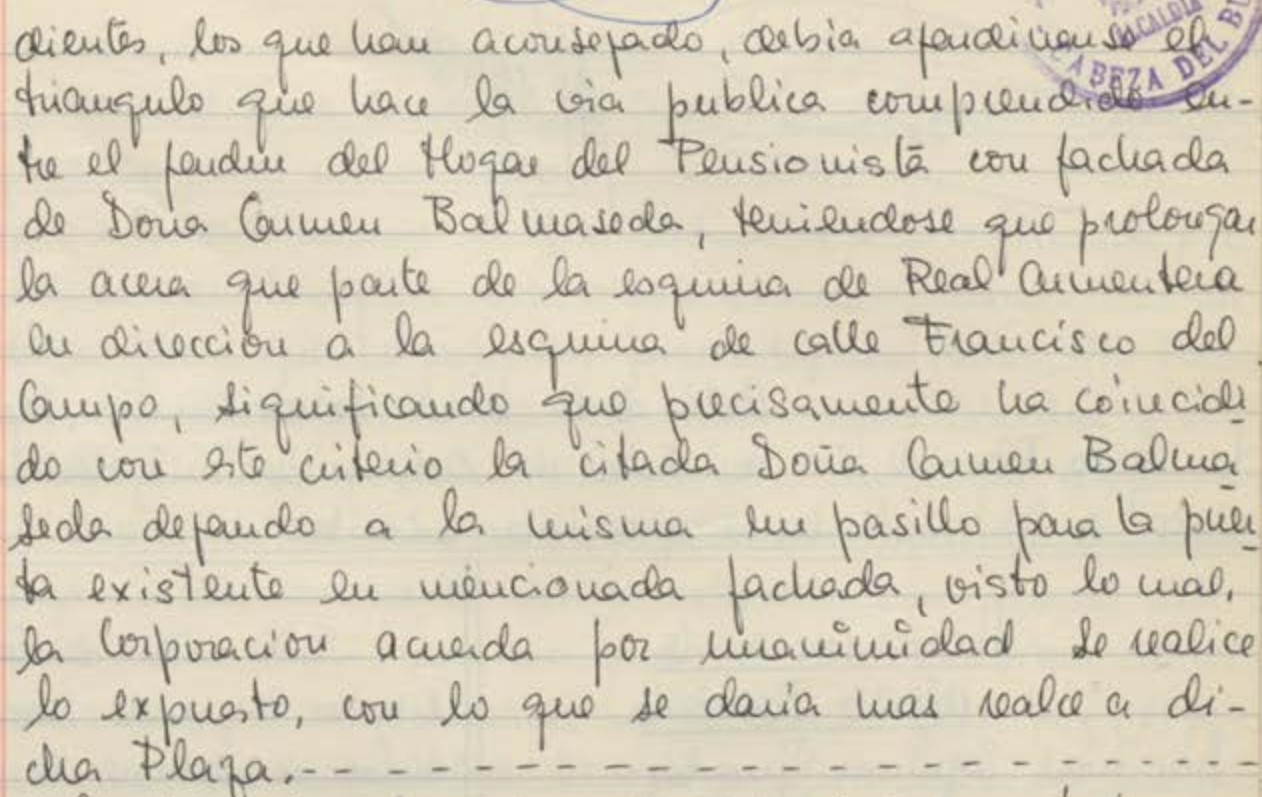 dientes, los que han aconsejado, debia ajardinarse el
triangulo que hace la via publica comprendido en-
tre el jardin del Hogar del Pensionista con fachada
de Doña Carmen Balmaseda, teniendose que prolongar
la acera que parte de la esquina de Real Armentera
en dirección a la esquina de calle Francisco del
Campo, significando que precisamente ha coincidi
do con este criterio la citada Doña Carmen Balma
seda dejando a la misma un pasillo para la puer
ta existente en mencionada fachada, visto lo cual,
la Corporación acuerda por unanimidad se realice
lo expuesto, con lo que se daria mas realce a di-
cha Plaza.- - - - - - - - - - - - - - - - - - - - - -
ALCALDIA
CABEZA DEL BU